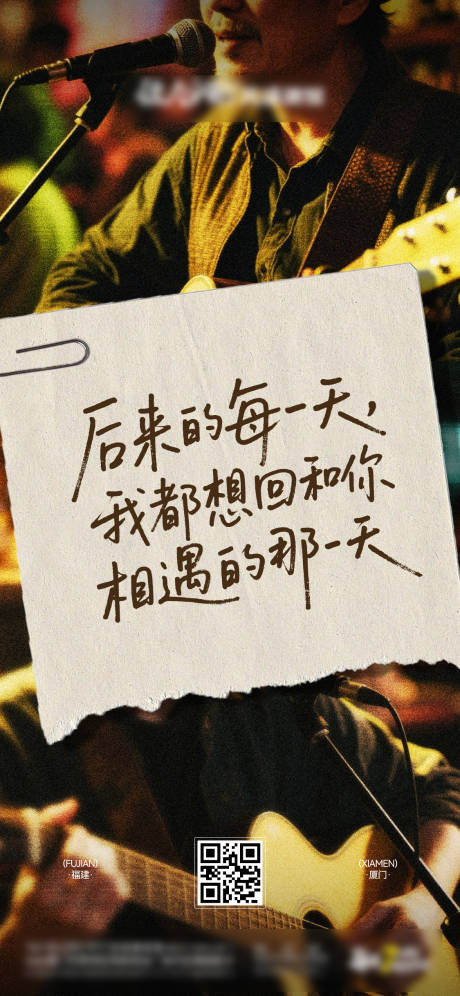 后来的每一天，
我都想回和你
相遇的那一天
(FUJIAN)
·福建·
(XIAMEN)
·厦门·